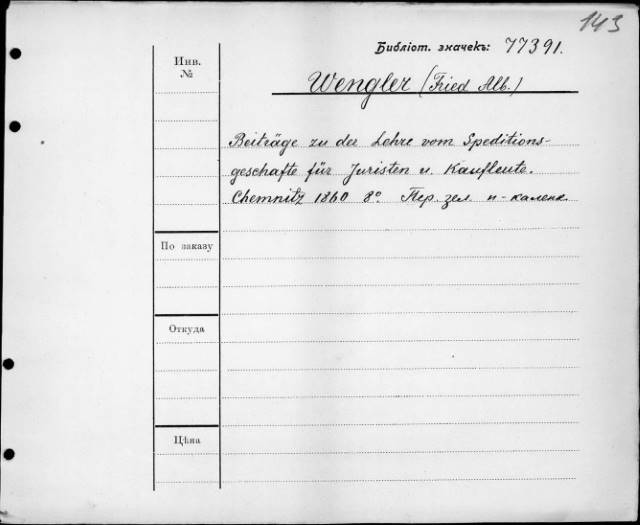 143
Библіот. значекъ: 77391.
Инв.
№
Wengler (Fried Alb.)
Beiträge zu der Lehre vom Speditions-
geschafte für Juristen u. Kaufleute.
Chemnitz 1860 8º. Пер. зел. п-каленк.
По заказу
Откуда
Цѣна